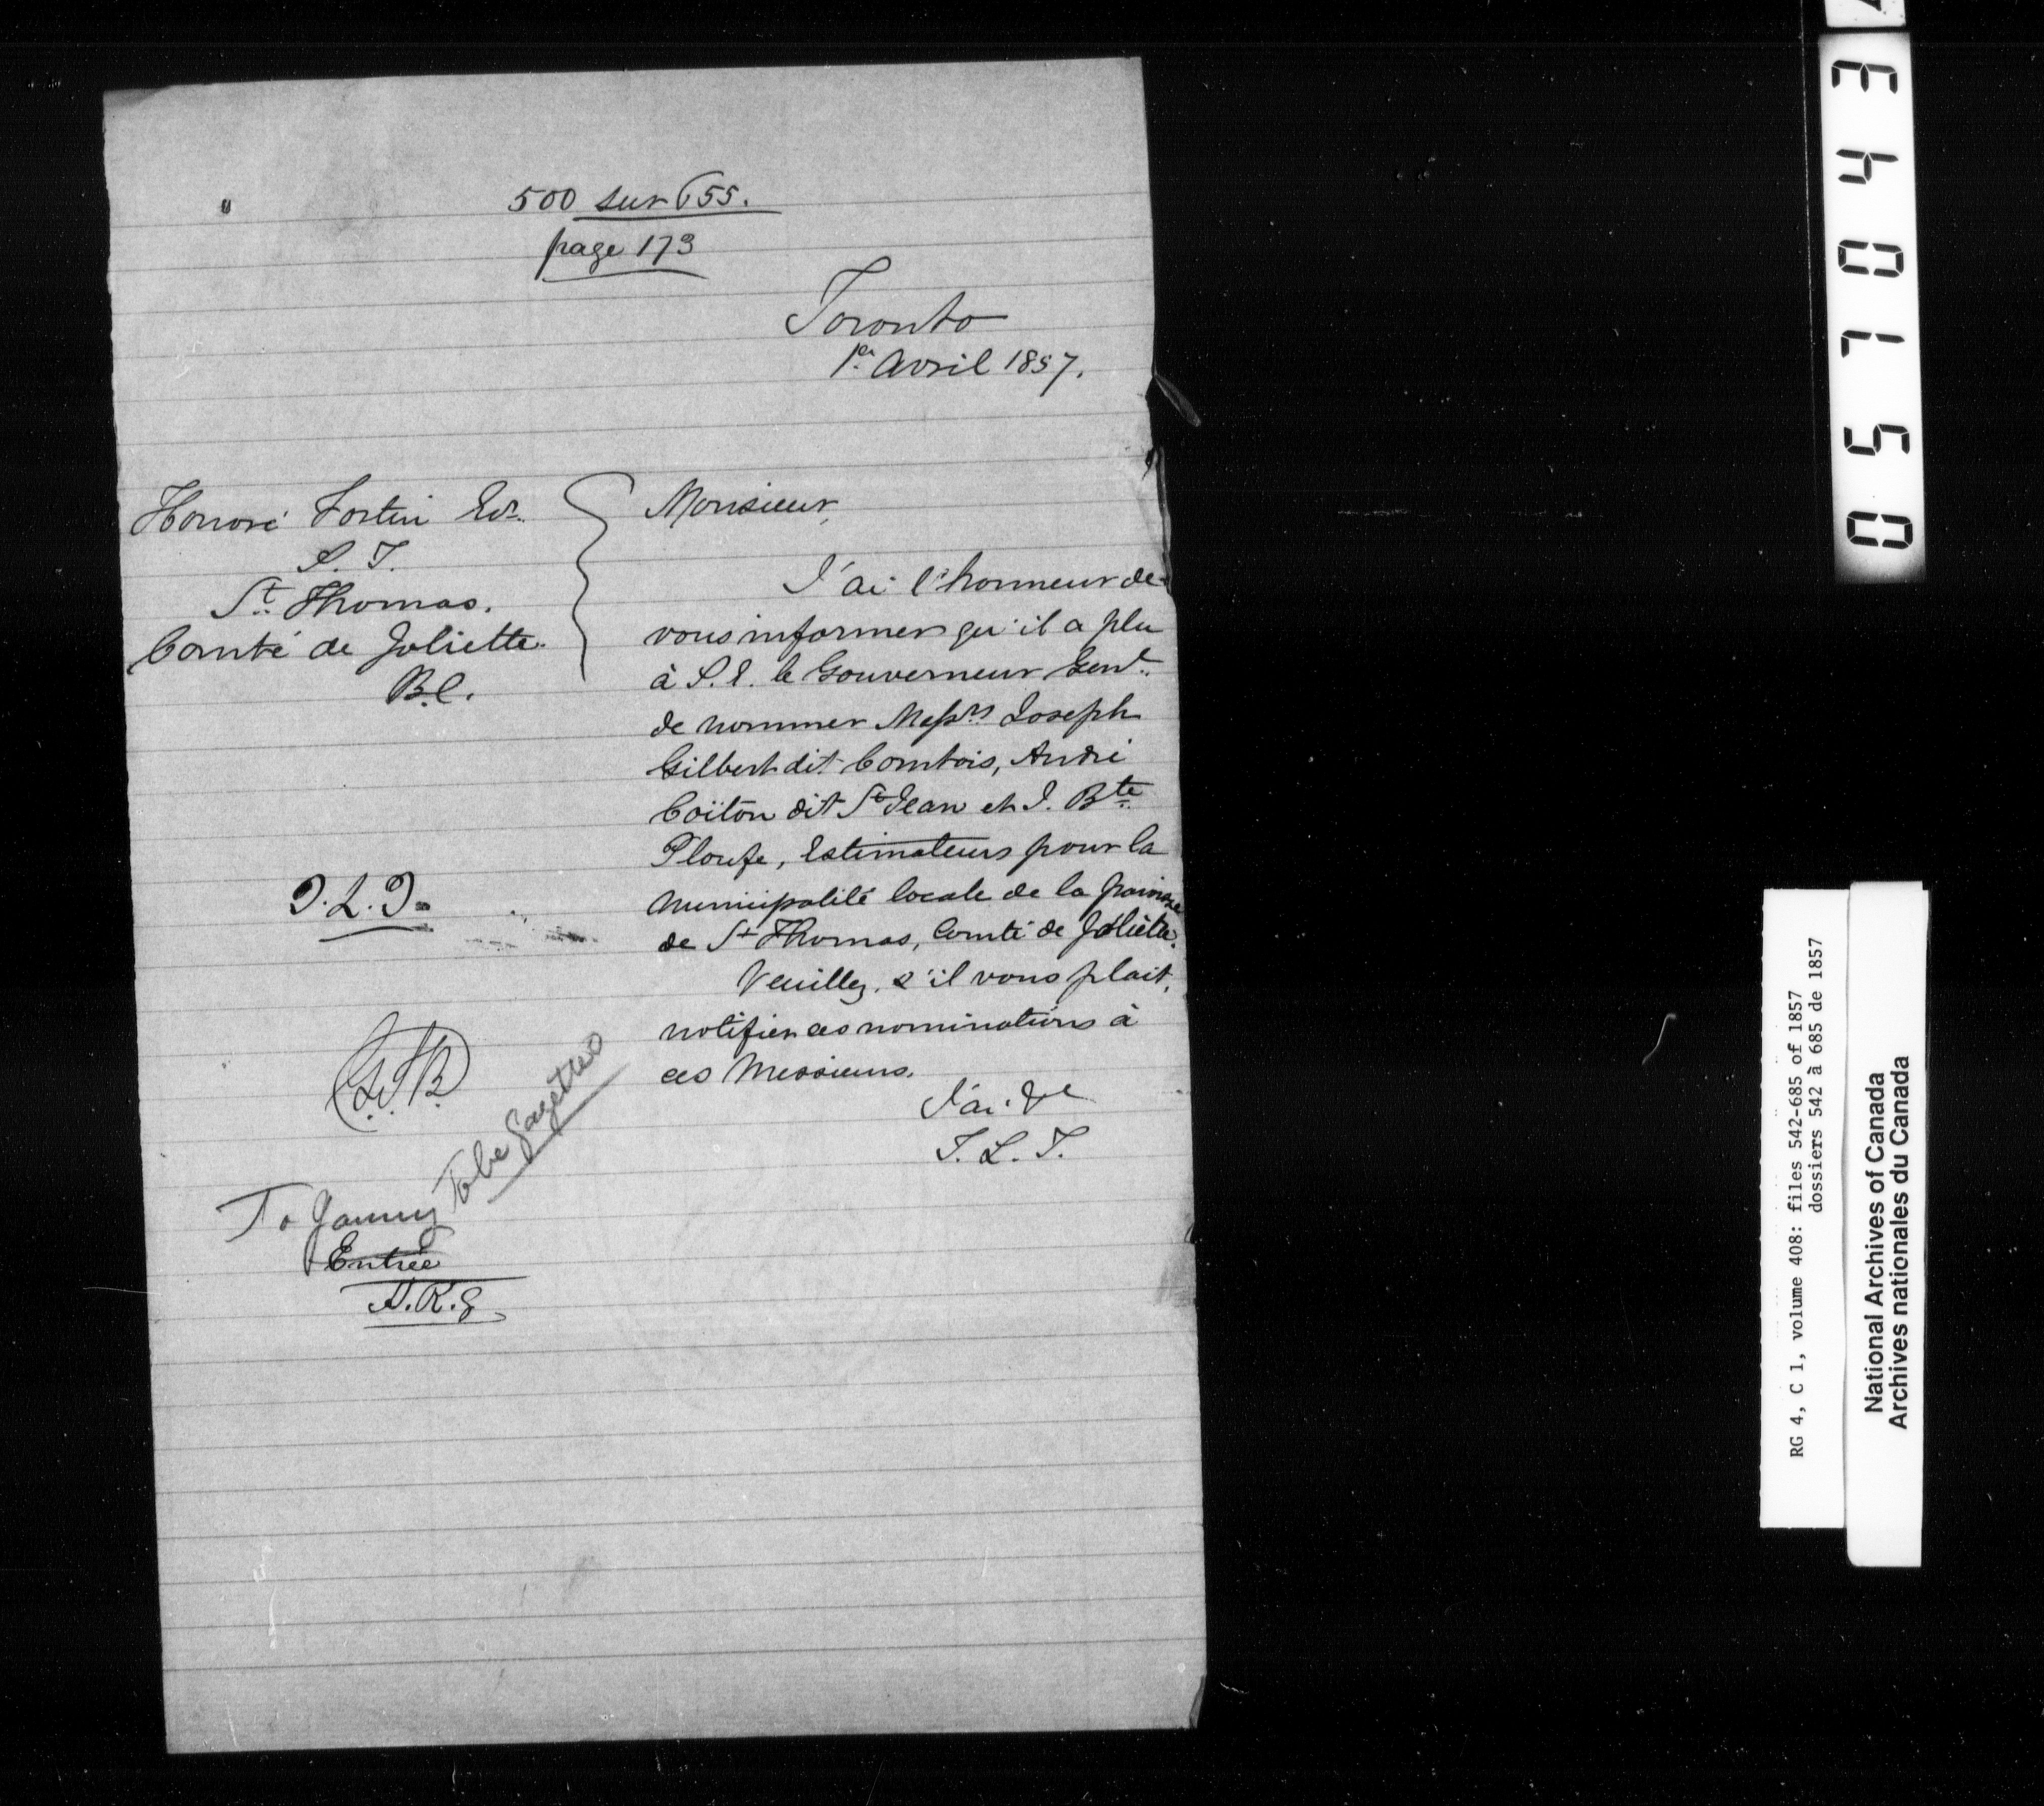 500 sur 655.
page 173
Toronto
1er Avril 1857.
Honoré Fortin Edr.
S. T.
St. Thomas.
Comté de Joliette.
B.C.
Monsieur,
J'ai l'honneur de
vous informer qu'il a plu
à S. E. le Gouverneur Genl.
de nommer Messrs Joseph
Gilbert dit Comtois, André
Coiton dit St Jean et J. Bte
Ploufe, Estimateurs pour la
Municipalité locale de la paroisse
de St Thomas, Comté de Joliette.
Veuillez, s'il vous plait,
notifier ces nominations à
ces Messieurs.
J'ai &c
T. L. T.
T.L.T.
To be Gazetted
To
Entrée
0 5 7 0 4 3
RG 4, C 1, volume 408: files 542-685 of 1857
dossiers 542 à 685 de 1857
National Archives of Canada
Archives nationales du Canada